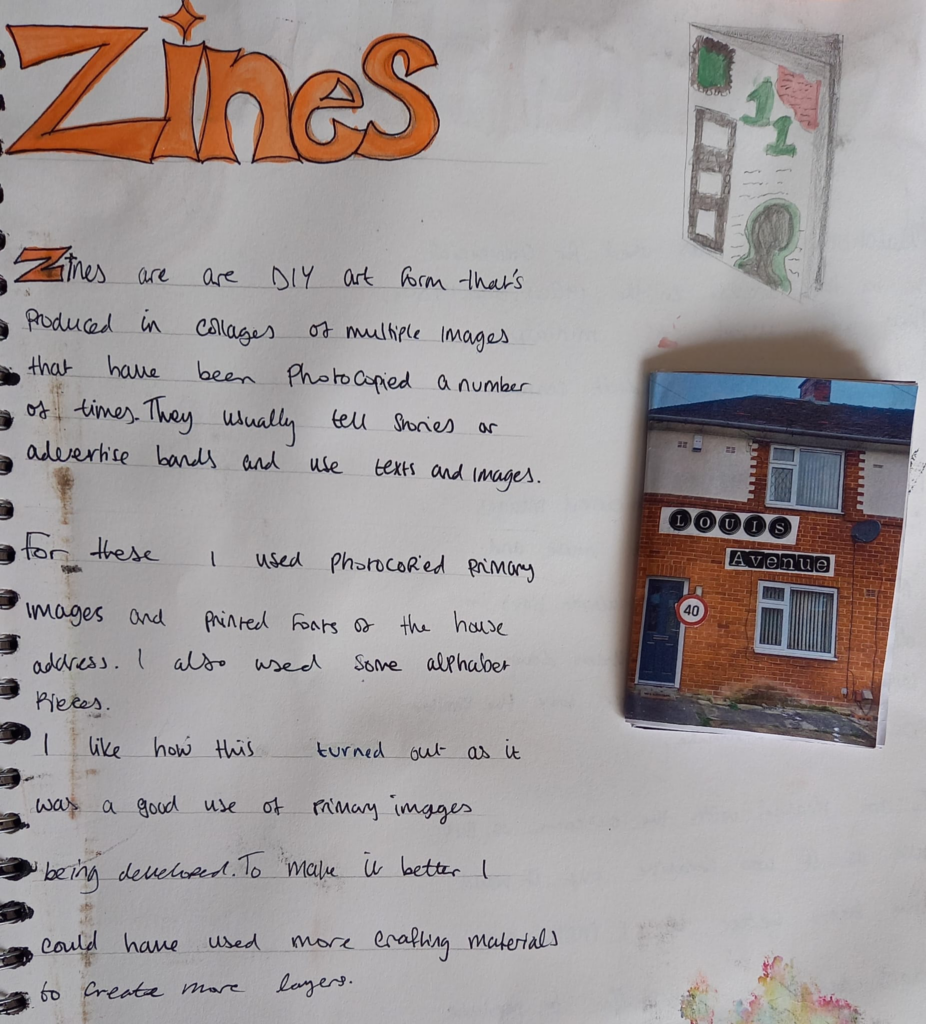 Zines
11
Zines are are DIY art form that's
produced in collages of multiple images
that have been photocopied a number
of times. They usually tell stories or
advertise bands and use texts and images.
LOUIS
Avenue
40
For these I used photocopied primary
images and printed fonts of the house
address. I also used some alphabet
pieces.
I like how this turned out as it
was a good use of primary images
being developed. To make it better I
could have used more crafting materials
to create more layers.